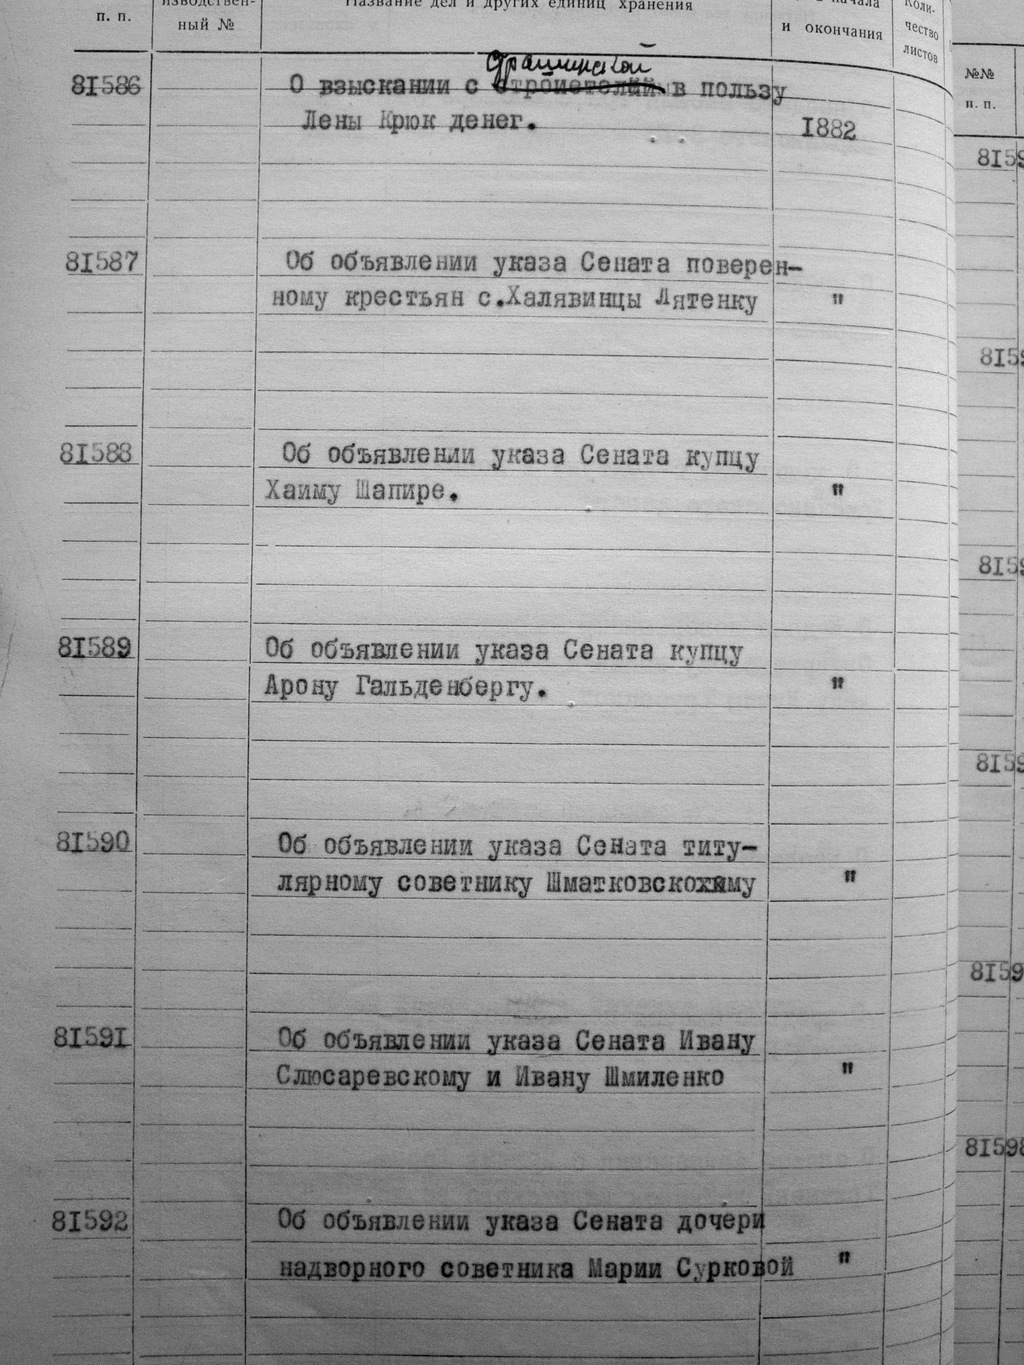 п. п.
изводствен-
ный №
Название дел и других единиц хранения
начала
и окончания
Коли-
чество
листов
81586
О взыскании с в пользу
Лены Крюк денег.
1882
81587
Об объявлении указа Сената поверен-
ному крестьян с.Халявинцы Лятенку
"
81588
Об объявлении указа Сената купцу
Хаиму Шапире.
"
81589
Об объявлении указа Сената купцу
Арону Гальденбергу.
"
81590
Об объявлении указа Сената титу-
лярному советнику
"
81591
Об объявлении указа Сената Ивану
Слюсаревскому и Ивану Шмиленко
"
81592
Об объявлении указа Сената дочери
надворного советника Марии Сурковой
"
№№
п. п.
8159
8159
8159
8159
8159
81598